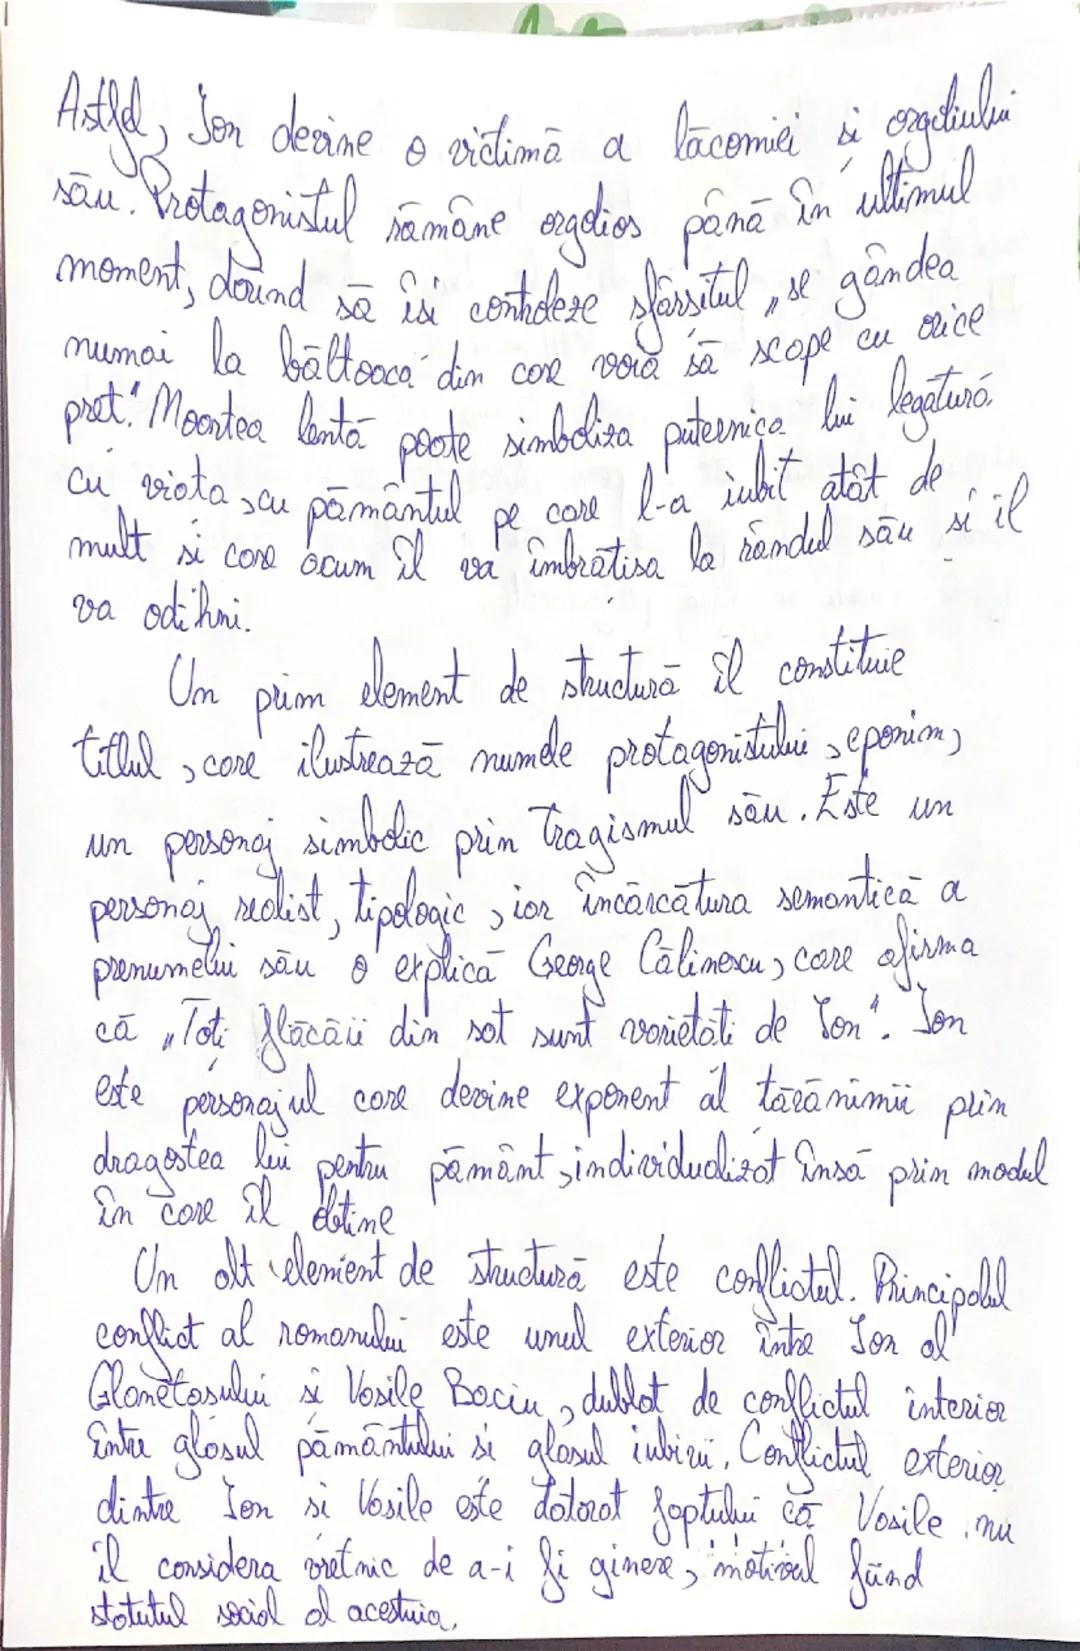 Astfel, Ion devine o victimă a lăcomiei și orgoliului
său. Protagonistul rămâne orgolios până în ultimul
moment, dorind să își controleze sfârșitul „se gândea
numai la băltoaca din care voia să scape cu orice
preț." Moartea lentă poate simboliza puternica lui legătură
cu viața, cu pământul pe care l-a iubit atât de
mult și care acum îl va îmbrățișa la rândul său și îl
va odihni.
Un prim element de structură îl constituie
titlul, care ilustrează numele protagonistului, eponim,
un personaj simbolic prin tragismul său. Este un
personaj realist, tipologic, iar încărcătura semantică a
prenumelui său o explică George Călinescu, care afirma
că „Toți flăcăii din sat sunt varietăți de Ion". Ion
este personajul care devine exponent al țărănimii prin
dragostea lui pentru pământ, individualizat însă prin modul
în care îl obține
Un alt element de structură este conflictul. Principalul
conflict al romanului este unul exterior între Ion al
Glanetașului și Vasile Baciu, dublat de conflictul interior
între glasul pământului și glasul iubirii. Conflictul exterior
dintre Ion și Vasile este datorat faptului că Vasile nu
îl considera vrednic de a-i fi ginere, motivul fiind
statutul social al acestuia.